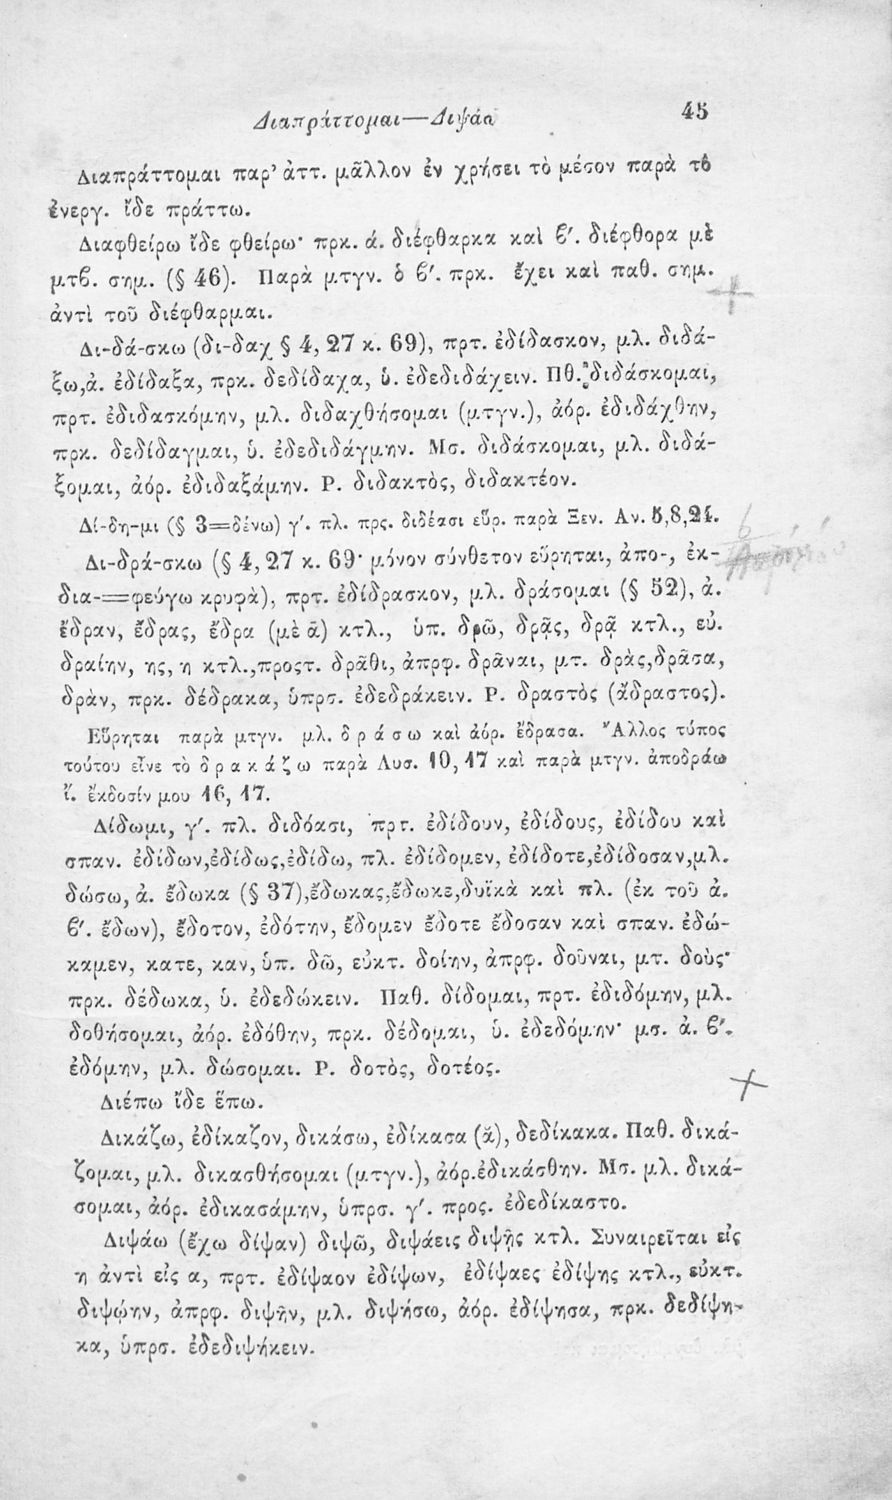 Διαπράττομαι—Διψάω
45
Διαπράττομαι παρ' ἀττ. μᾶλλον ἐν χρήσει τὸ μέσον παρὰ τὸ
ἐνεργ. ἴδε πράττω.
Διαφθείρω ἴδε φθείρω· πρκ. ά. διέφθαρκα καὶ ϐ'. διέφθορα μὲ
μτϐ. σημ. (§ 46). Παρὰ μτγν. ὁ ϐ'. πρκ. ἔχει καὶ παθ. σημ.
ἀντὶ τοῦ διέφθαρμαι.
Δι-δά-σκω (δι-δαχ § 4, 27 κ. 69), πρτ. ἐδίδασκον, μλ. διδά-
ξω,ἀ. ἐδίδαξα, πρκ. δεδίδαχα, ὑ. ἐδεδιδάχειν. Πθ. διδάσκομαι,
πρτ. ἐδιδασκόμην, μλ. διδαχθήσομαι (μτγν.), ἀόρ. ἐδιδάχθην,
πρκ. δεδίδαγμαι, ὑ. ἐδεδιδάγμην. Μσ. διδάσκομαι, μλ. διδά-
ξομαι, ἀόρ. ἐδιδαξάμην. Ρ. διδακτὸς, διδακτέον.
Δί-δη-μι (§ 3=δένω) γ'. πλ. πρς. διδέασι εὕρ. παρὰ Ξεν. Αν. 5,8,24.
Δι-δρά-σκω (§ 4, 27 κ. 69· μόνον σύνθετον εὕρηται, ἀπο-, ἐκ-
δια-=φεύγω κρυφὰ), πρτ. ἐδίδρασκον, μλ. δράσομαι (§ 52), ἀ.
ἔδραν, ἔδρας, ἔδρα (μὲ ᾱ) κτλ., ὑπ. δρῶ, δρᾷς, δρᾷ κτλ., εὐ.
δραίην, ης, η κτλ.,προστ. δρᾶθι, ἀπρφ. δρᾶναι, μτ. δρὰς,δρᾶσα,
δρὰν, πρκ. δέδρακα, ὑπρσ. ἐδεδράκειν. Ρ. δραστὸς (ἄδραστος).
Εὕρηται παρὰ μτγν. μλ. δ ρ ά σ ω καὶ ἀόρ. ἔδρασα. Ἄλλος τύπος
τούτου εἶνε τὸ δ ρ α κ ά ζ ω παρὰ Λυσ. 10, 17 καὶ παρὰ μτγν. ἀποδράω
ἴ. ἔκδοσίν μου 16, 17.
Δίδωμι, γ'. πλ. διδόασι, πρτ. ἐδίδουν, ἐδίδους, ἐδίδου καὶ
σπαν. ἐδίδων,ἐδίδως,ἐδίδω, πλ. ἐδίδομεν, ἐδίδοτε,ἐδίδοσαν,μλ.
δώσω, ἀ. ἔδωκα (§ 37),ἔδωκας,ἔδωκε,δυϊκὰ καὶ πλ. (ἐκ τοῦ ἀ.
ϐ'. ἔδων), ἔδοτον, ἐδότην, ἔδομεν ἔδοτε ἔδοσαν καὶ σπαν. ἐδώ-
καμεν, κατε, καν, ὑπ. δῶ, εὐκτ. δοίην, ἀπρφ. δοῦναι, μτ. δοὺς·
πρκ. δέδωκα, ὑ. ἐδεδώκειν. Παθ. δίδομαι, πρτ. ἐδιδόμην, μλ.
δοθήσομαι, ἀόρ. ἐδόθην, πρκ. δέδομαι, ὑ. ἐδεδόμην· μσ. ἀ. ϐ'.
ἐδόμην, μλ. δώσομαι. Ρ. δοτὸς, δοτέος.
Διέπω ἴδε ἕπω.
Δικάζω, ἐδίκαζον, δικάσω, ἐδίκασα (ᾰ), δεδίκακα. Παθ. δικά-
ζομαι, μλ. δικασθήσομαι (μτγν.), ἀόρ.ἐδικάσθην. Μσ. μλ. δικά-
σομαι, ἀόρ. ἐδικασάμην, ὑπρσ. γ'. προς. ἐδεδίκαστο.
Διψάω (ἔχω δίψαν) διψῶ, διψάεις διψῇς κτλ. Συναιρεῖται εἰς
η ἀντὶ εἰς α, πρτ. ἐδίψαον ἐδίψων, ἐδίψαες ἐδίψης κτλ., εὐκτ.
διψῴην, ἀπρφ. διψῆν, μλ. διψήσω, ἀόρ. ἐδίψησα, πρκ. δεδίψη-
κα, ὑπρσ. ἐδεδιψήκειν.